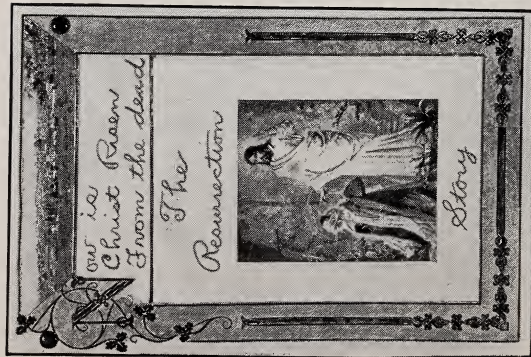 ow is
Christ Risen
From the dead
The
Resurrection
Story